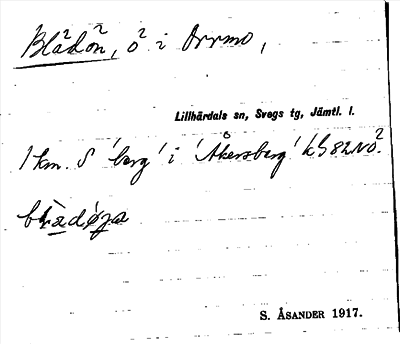 Blådön, ö i Orrmo,
Lillhärdals sn, Svegs tg, Jämtl. l.
1 km. S 'berg' i 'Åkersberg' kS 82 NO.
S. ÅSANDER 1917.